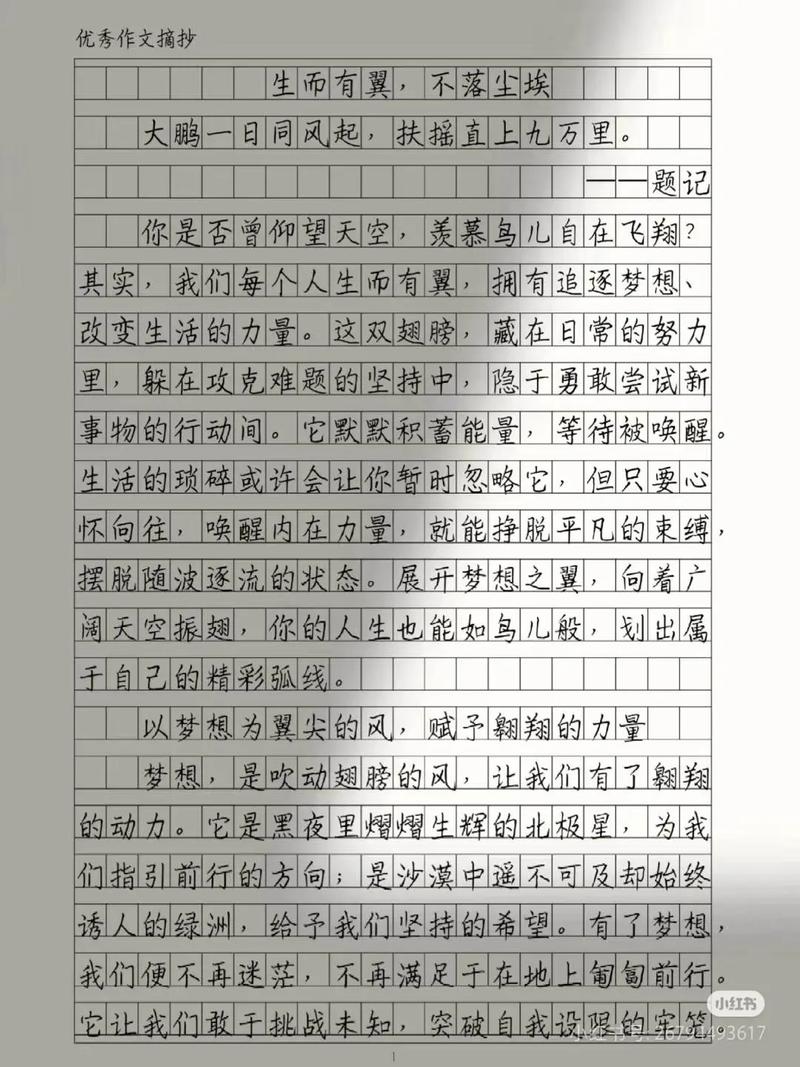 优秀作文摘抄
生而有翼，不落尘埃
大鹏一日同风起，扶摇直上九万里。
——题记
你是否曾仰望天空，羡慕鸟儿自在飞翔？
其实，我们每个人生而有翼，拥有追逐梦想、
改变生活的力量。这双翅膀，藏在日常的努力
里，躲在攻克难题的坚持中，隐于勇敢尝试新
事物的行动间。它默默积蓄能量，等待被唤醒。
生活的琐碎或许会让你暂时忽略它，但只要心
怀向往，唤醒内在力量，就能挣脱平凡的束缚，
摆脱随波逐流的状态。展开梦想之翼，向着广
阔天空振翅，你的人生也能如鸟儿般，划出属
于自己的精彩弧线。
以梦想为翼尖的风，赋予翱翔的力量
梦想，是吹动翅膀的风，让我们有了翱翔
的动力。它是黑夜里熠熠生辉的北极星，为我
们指引前行的方向；是沙漠中遥不可及却始终
诱人的绿洲，给予我们坚持的希望。有了梦想，
我们便不再迷茫，不再满足于在地上匍匐前行。
它让我们敢于挑战未知，突破自我设限的牢笼。
小红书
小红书号：26794493617
1